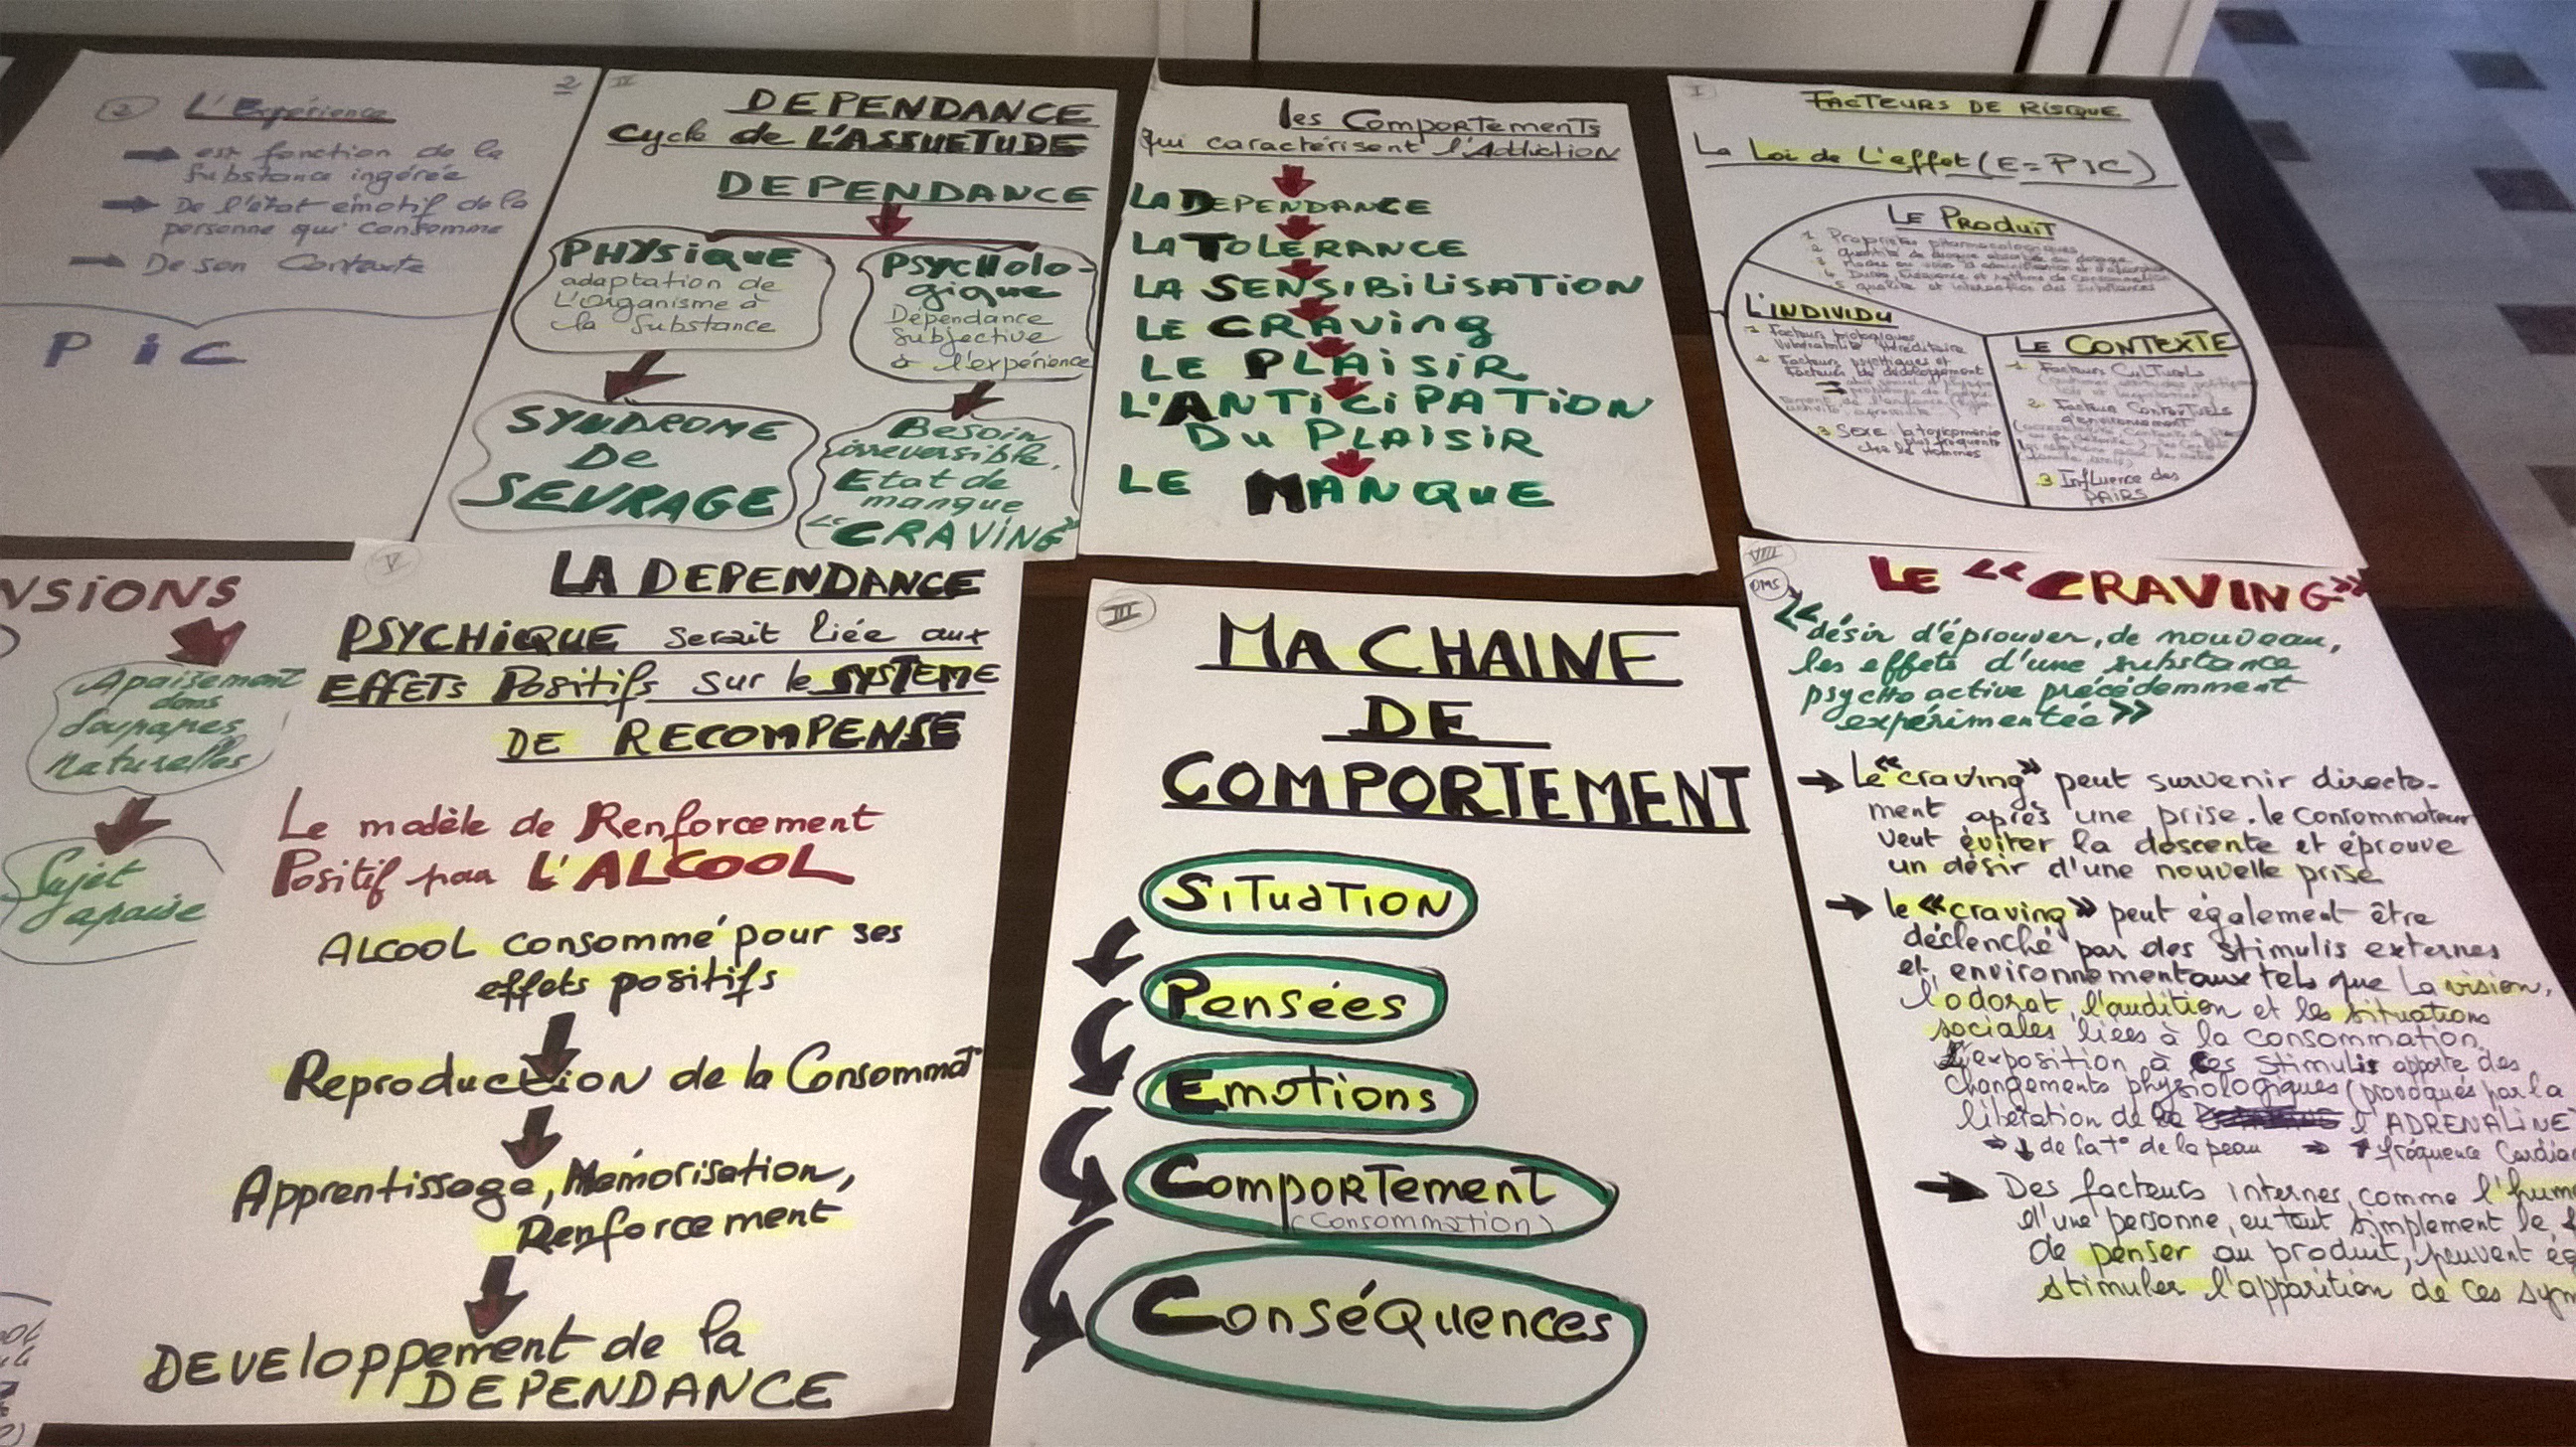 2
② L'Expérience
➡ est fonction de la
substance ingérée
➡ De l'état émotif de la
personne qui consomme
➡ De son Contexte
PIC
II
DEPENDANCE
Cycle de L'ASSUETUDE
DEPENDANCE
PHYSIQUE
adaptation de
L'Organisme à
la Substance
PSYCHOLO-
gique
Dépendance
Subjective
à l'expérience
SYNDROME
De
SEVRAGE
Besoin
irreversible,
Etat de
manque
"CRAVING"
les Comportements
qui caractérisent l'Addiction
LA DEPENDANCE
LA TOLERANCE
LA SENSIBILISATION
LE CRAVING
LE PLAISIR
L'ANTICIPATION
DU PLAISIR
LE MANQUE
I
FACTEURS DE RISQUE
La Loi de L'effet (E=PIC)
LE PRODUIT
1 Propriétés pharmacologiques
5 qualité et interaction des substances
L'INDIVIDU
1 Facteurs biologiques
Vulnérabilité Héréditaire
2 Facteurs psychiques et
Facteurs de développement
3 Sexe: la toxicomanie
plus fréquente
chez les Hommes
LE CONTEXTE
1 Facteurs CULTURELS
2 Facteurs Contextuels
d'environnement
3 Influence des
PAIRS
NSIONS
Apaisement
dans
Soupapes
Naturelles
Sujet
apaisé
V
LA DEPENDANCE
PSYCHIQUE serait liée aux
EFFETS Positifs sur le SYSTEME
DE RECOMPENSE
Le modèle de Renforcement
Positif par L'ALCOOL
ALCOOL consommé pour ses
effets positifs
Reproduction de la Consommat°
Apprentissage, Mémorisation,
Renforcement
DEVELOPPEMENT de la
DEPENDANCE
III
MA CHAINE
DE
COMPORTEMENT
SITUATION
Pensées
Emotions
COMPORTEMENT
(Consommation)
Conséquences
VIII
LE «CRAVING»
OMS
«désir d'éprouver, de nouveau,
les effets d'une substance
psychoactive précédemment
expérimentée»
➔ Le "craving" peut survenir directe-
ment après une prise. le consommateur
veut éviter la descente et éprouve
un désir d'une nouvelle prise
➔ le «craving» peut également être
déclenché par des stimulis externes
et environnementaux tels que la vision,
l'odorat, l'audition et les situations
sociales liées à la consommation.
L'exposition à ces stimulis apporte des
changements physiologiques (provoqués par la
libération de l'ADRENALINE
➔ ↓ de la t° de la peau ➔ ↑ fréquence Cardia
➔ Des facteurs internes, comme l'hum
d'une personne, ou tout simplement le
de penser au produit, peuvent ég
stimuler l'apparition de ces sym